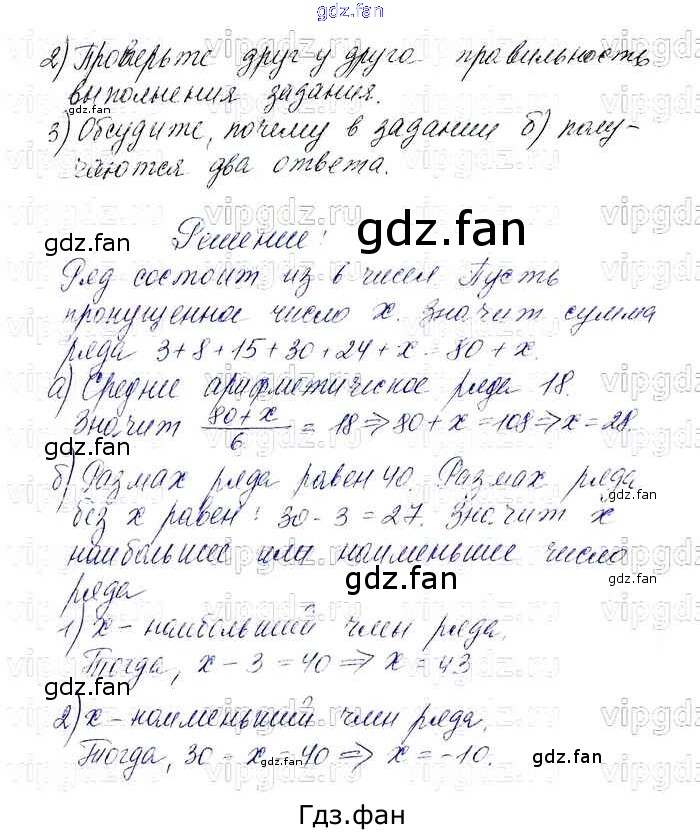 gdz.fan
2) Проверьте друг у друга правильность
выполнения задания.
gdz.fan
3) Обсудите, почему в задании б) полу-
чаются два ответа.
gdz.fan
gdz.fan
Решение:
Ряд состоит из 6 чисел. Пусть
пропущенное число х. Значит сумма
ряда 3+8+15+30+24+х = 80+х.
а) Среднее арифметическое ряда 18.
Значит (80+х)/6 = 18 ⇒ 80+х=108 ⇒ х=28.
б) Размах ряда равен 40. Размах ряда
без х равен: 30-3=27. Значит х
наибольшее или наименьшее число
gdz.fan
gdz.fan
ряда
1) х - наибольший член ряда.
Тогда, х-3=40 ⇒ х=43
gdz.fan
2) х - наименьший член ряда.
Тогда, 30-х=40 ⇒ х=-10.
gdz.fan
gdz.fan
Гдз.фан